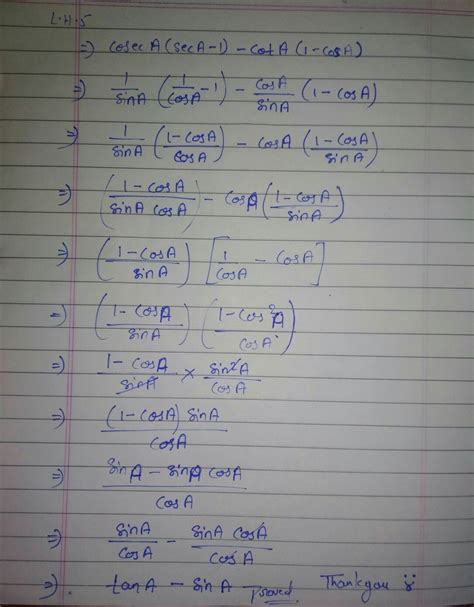 L.H.S
⇒ cosec A (sec A - 1) - cot A (1 - cos A)
⇒ 1/sin A (1/cos A - 1) - cos A/sin A (1 - cos A)
⇒ 1/sin A ((1 - cos A)/cos A) - cos A ((1 - cos A)/sin A)
⇒ ((1 - cos A)/(sin A cos A)) - cos A ((1 - cos A)/sin A)
⇒ ((1 - cos A)/sin A) [1/cos A - cos A]
⇒ ((1 - cos A)/sin A) ((1 - cos²A)/cos A)
⇒ (1 - cos A)/sin A × sin²A/cos A
⇒ (1 - cos A) sin A/cos A
⇒ (sin A - sin A cos A)/cos A
⇒ sin A/cos A - sin A cos A/cos A
⇒ tan A - sin A proved Thank you